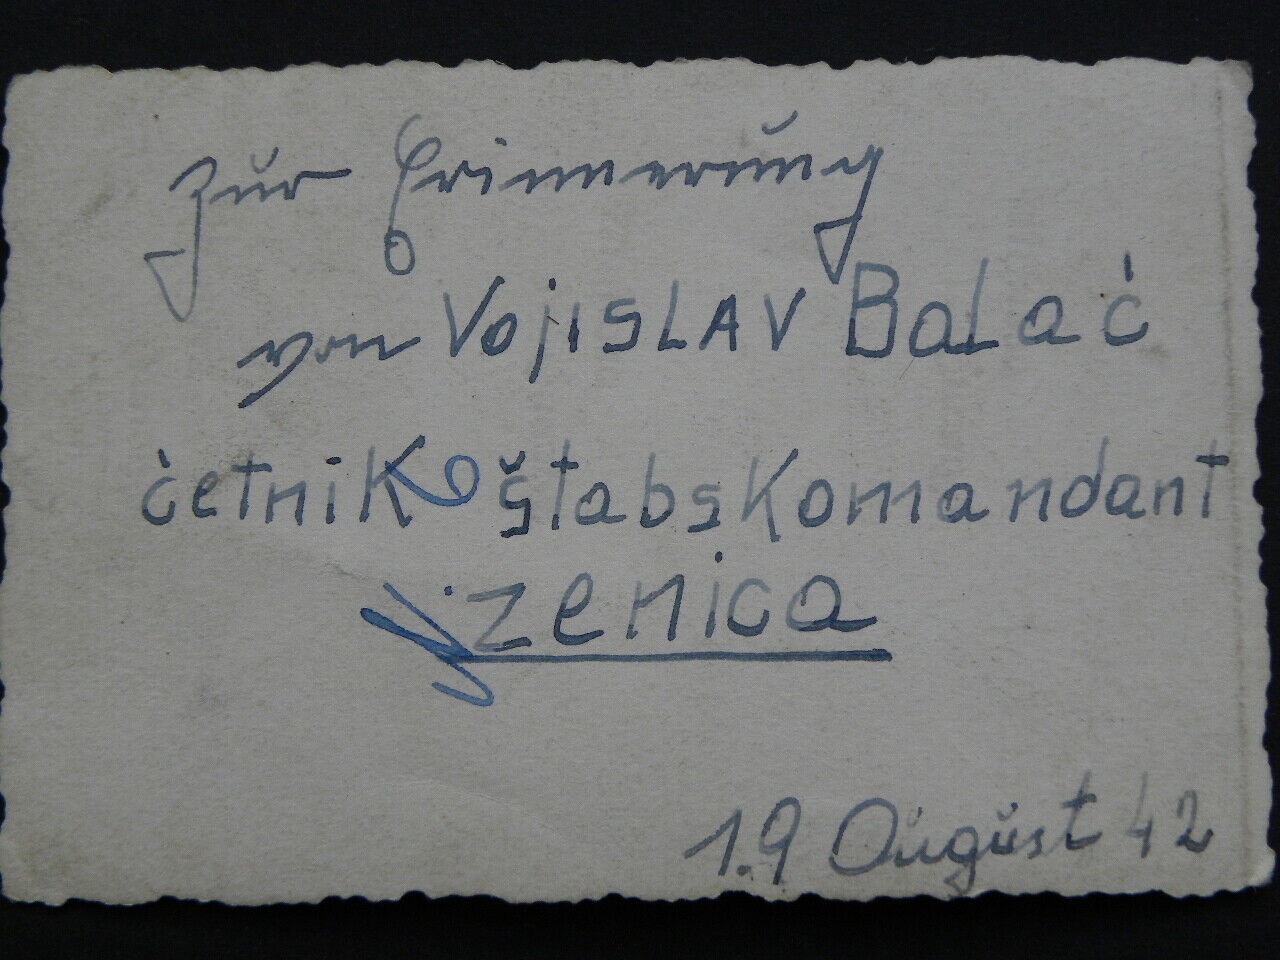 Zur Erinnerung
von Vojislav Balać
četnik štabskomandant
Zenica
19 August 42